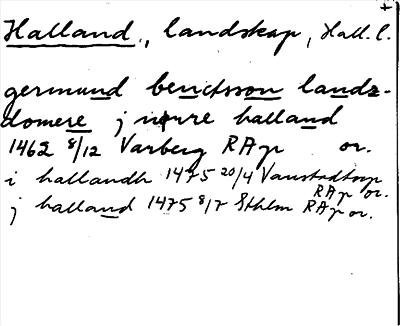 +
Halland, landskap, Hall. l.
germund benctsson landz-
domere j nørre halland
1462 8/12 Varberg RAp or.
i hallandh 1475 20/4 Vanstadtorp
RAp or.
j halland 1475 8/7 Sthlm RAp or.